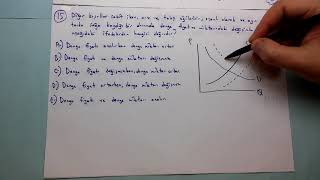 15) Diğer koşullar sabit iken, arz ve talep eğrilerinin, eşanlı olarak ve aynı
oranda sağa kaydığı bir durumda denge fiyat ve miktarındaki değişimle
aşağıdaki ifadelerden hangisi doğrudur?
A) Denge fiyatı azalırken denge miktarı artar
B) Denge fiyatı ve denge miktarı değişmez
C) Denge fiyatı değişmezken, denge miktarı artar
D) Denge fiyatı artarken, denge miktarı değişmez
E) Denge fiyatı ve denge miktarı azalır
P
D
Q